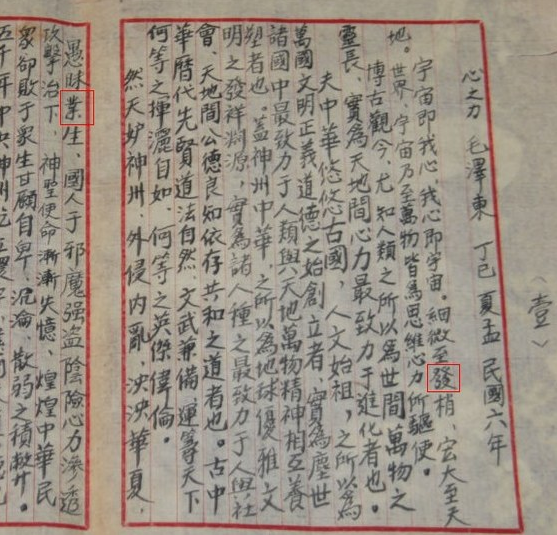 〈壹〉
心之力 毛澤東 丁巳 夏孟 民國六年
宇宙即我心,我心即宇宙。細微至發梢,宏大至天
地。世界、宇宙乃至萬物皆為思維心力所驅使。
博古觀今,尤知人類之所以為世間萬物之
靈長,實為天地間心力最致力于進化者也。
夫中華悠悠古國,人文始祖,之所以為
萬國文明正義道德之始創立者,實為塵世
諸國中最致力于人類與天地萬物精神相互養
塑者也。蓋神州中華,之所以為地球優雅文
明之發祥淵源,實為諸人種之最致力于人與社
會、天地間公德良知依存共和之道者也。古中
華曆代先賢道法自然,文武兼備,運等天下
何等之揮灑自如,何等之英傑偉倫。
然天妒神州,外侵内亂,泱泱華夏,
愚昧業生、國人于邪魔强盗陰險心力滲透
攻擊治下,神聖使命漸漸失憶,煌煌中華民
衆卻敗于衆生甘願自卑、沉淪、散弱之積弊。
五千年中央神州